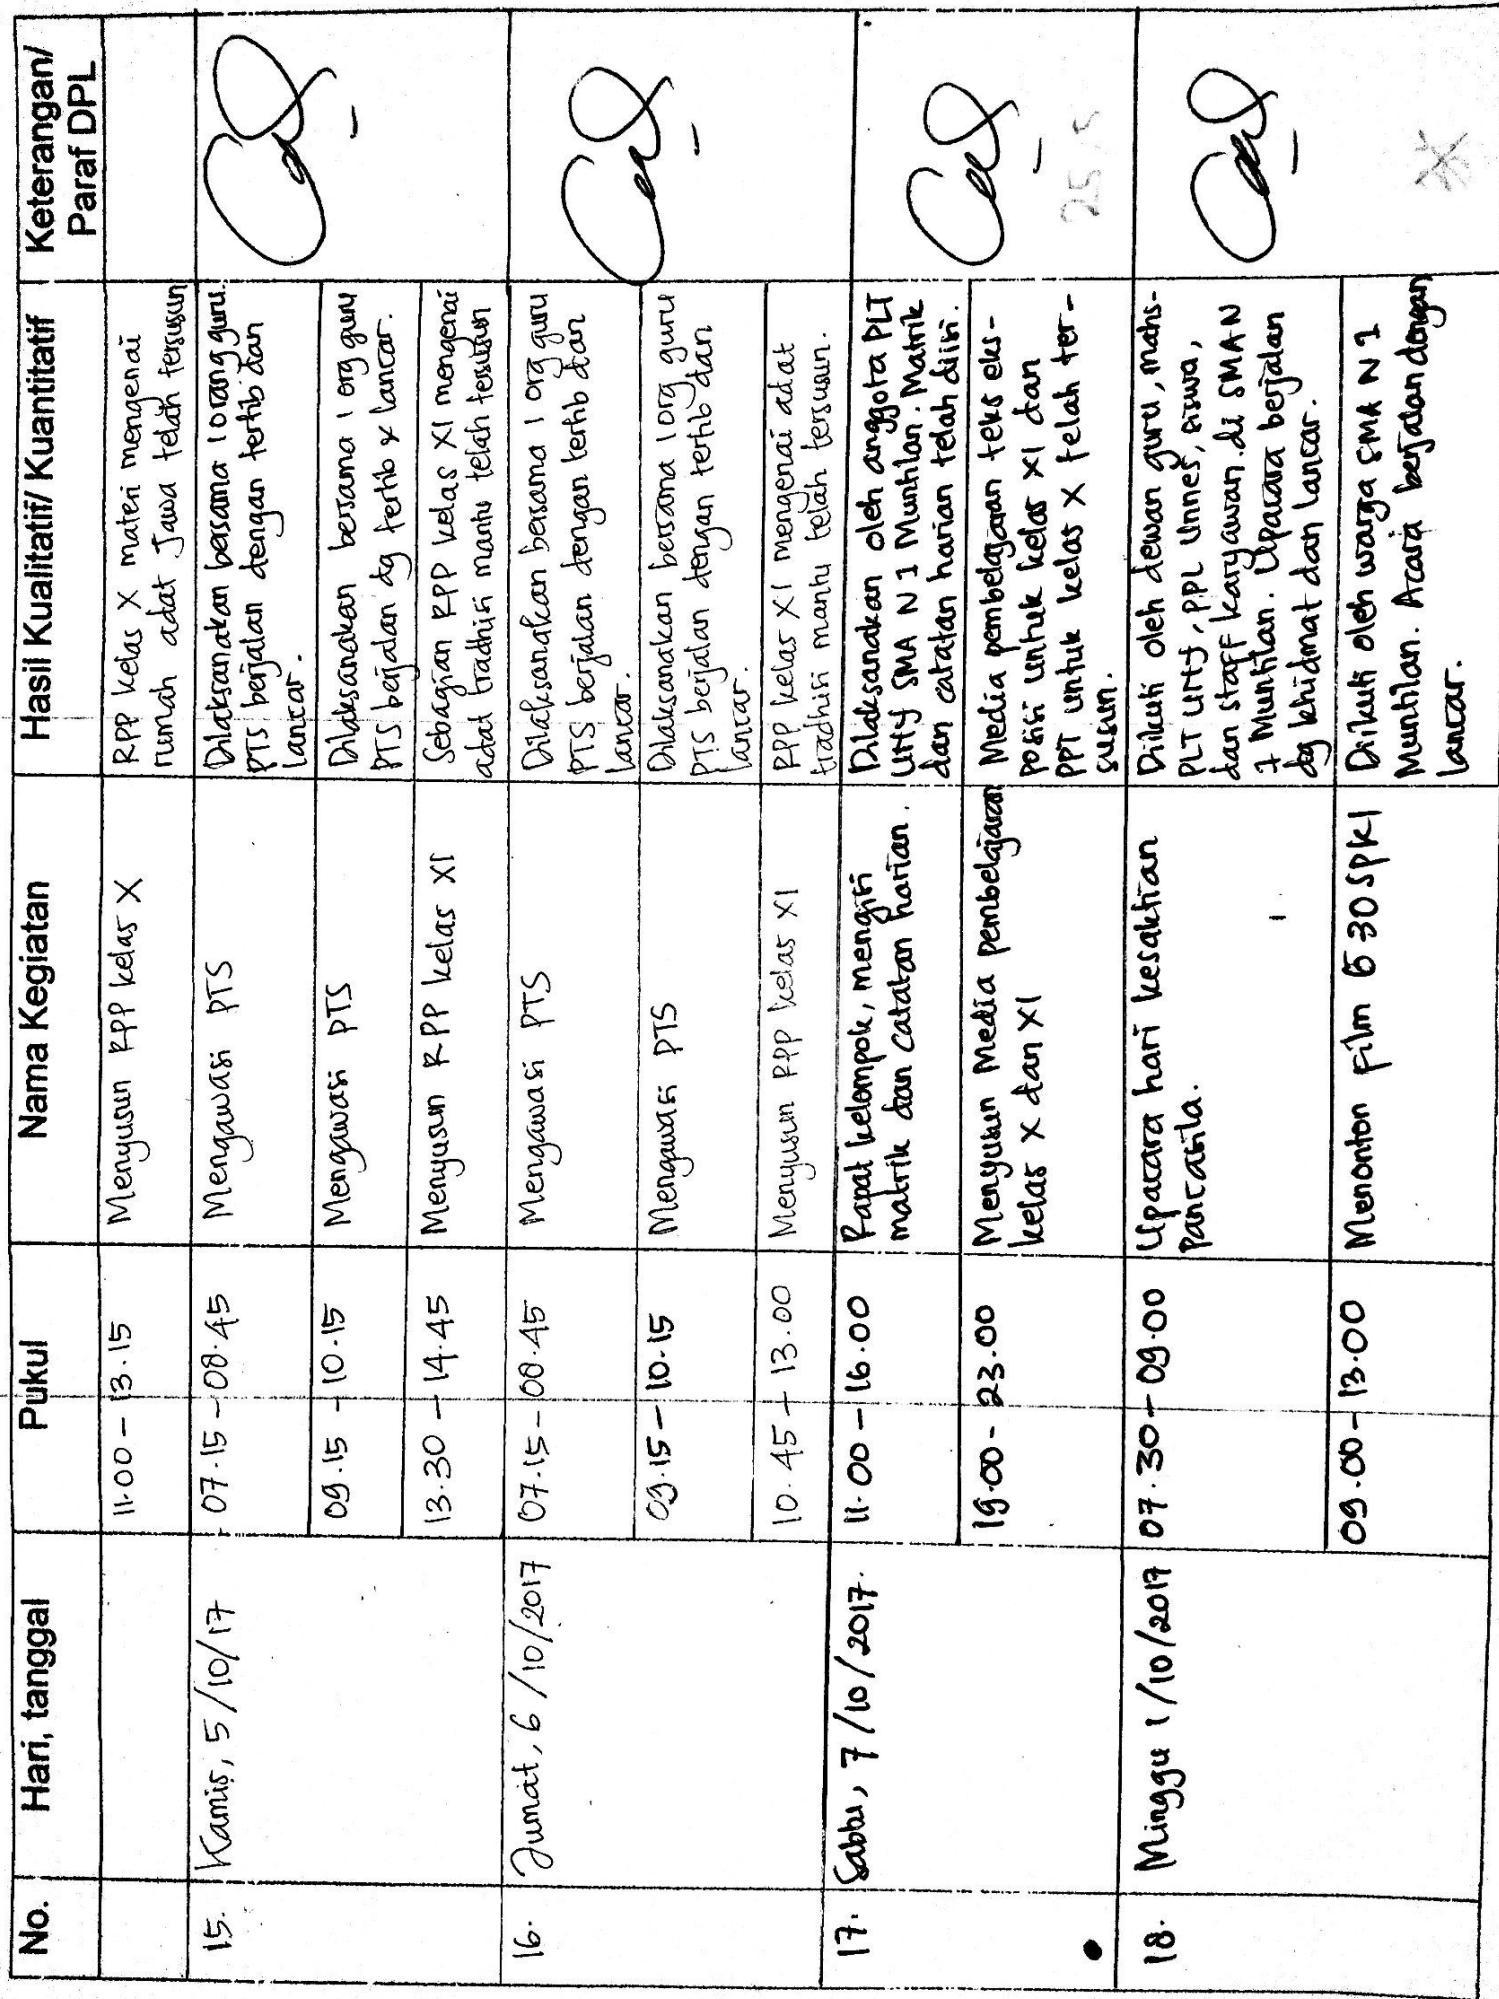 No.
Hari, tanggal
Pukul
Nama Kegiatan
Hasil Kualitatif/ Kuantitatif
Keterangan/
Paraf DPL
11.00 – 13.15
Menyusun RPP kelas X
RPP kelas X materi mengenai
rumah adat Jawa telah tersusun
15.
Kamis, 5/10/17
07.15 – 08.45
Mengawasi PTS
Dilaksanakan bersama 1 orang guru.
PTS berjalan dengan tertib dan
lancar.
09.15 – 10.15
Mengawasi PTS
Dilaksanakan bersama 1 org guru
PTS berjalan dg tertib & lancar.
13.30 – 14.45
Menyusun RPP kelas XI
Sebagian RPP kelas XI mengenai
adat tradhisi mantu telah tersusun
16.
Jumat, 6/10/2017
07.15 – 08.45
Mengawasi PTS
Dilaksanakan bersama 1 org guru
PTS berjalan dengan tertib dan
lancar.
09.15 – 10.15
Mengawasi PTS
Dilaksanakan bersama 1 org guru
PTS berjalan dengan tertib dan
lancar.
10.45 – 13.00
Menyusun RPP kelas XI
RPP kelas XI mengenai adat
tradhisi mantu telah tersusun.
17.
Sabtu, 7/10/2017.
11.00 – 16.00
Rapat kelompok, mengisi
matrik dan catatan harian.
Dilaksanakan oleh anggota PLT
UNY SMA N 1 Muntilan. Matrik
dan catatan harian telah diisi.
19.00 – 23.00
Menyusun Media pembelajaran
kelas X dan XI
Media pembelajaran teks eks-
posisi untuk kelas XI dan
PPT untuk kelas X telah ter-
susun.
25
18.
Minggu 1/10/2017
07.30 – 09.00
Upacara hari kesaktian
Pancasila.
Diikuti oleh dewan guru, mahs-
PLT UNY, PPL Unnes, siswa,
dan staff karyawan di SMA N
1 Muntilan. Upacara berjalan
dg khidmat dan lancar.
09.00 – 13.00
Menonton Film G 30 SPKI
Diikuti oleh warga SMA N 1
Muntilan. Acara berjalan dengan
lancar.